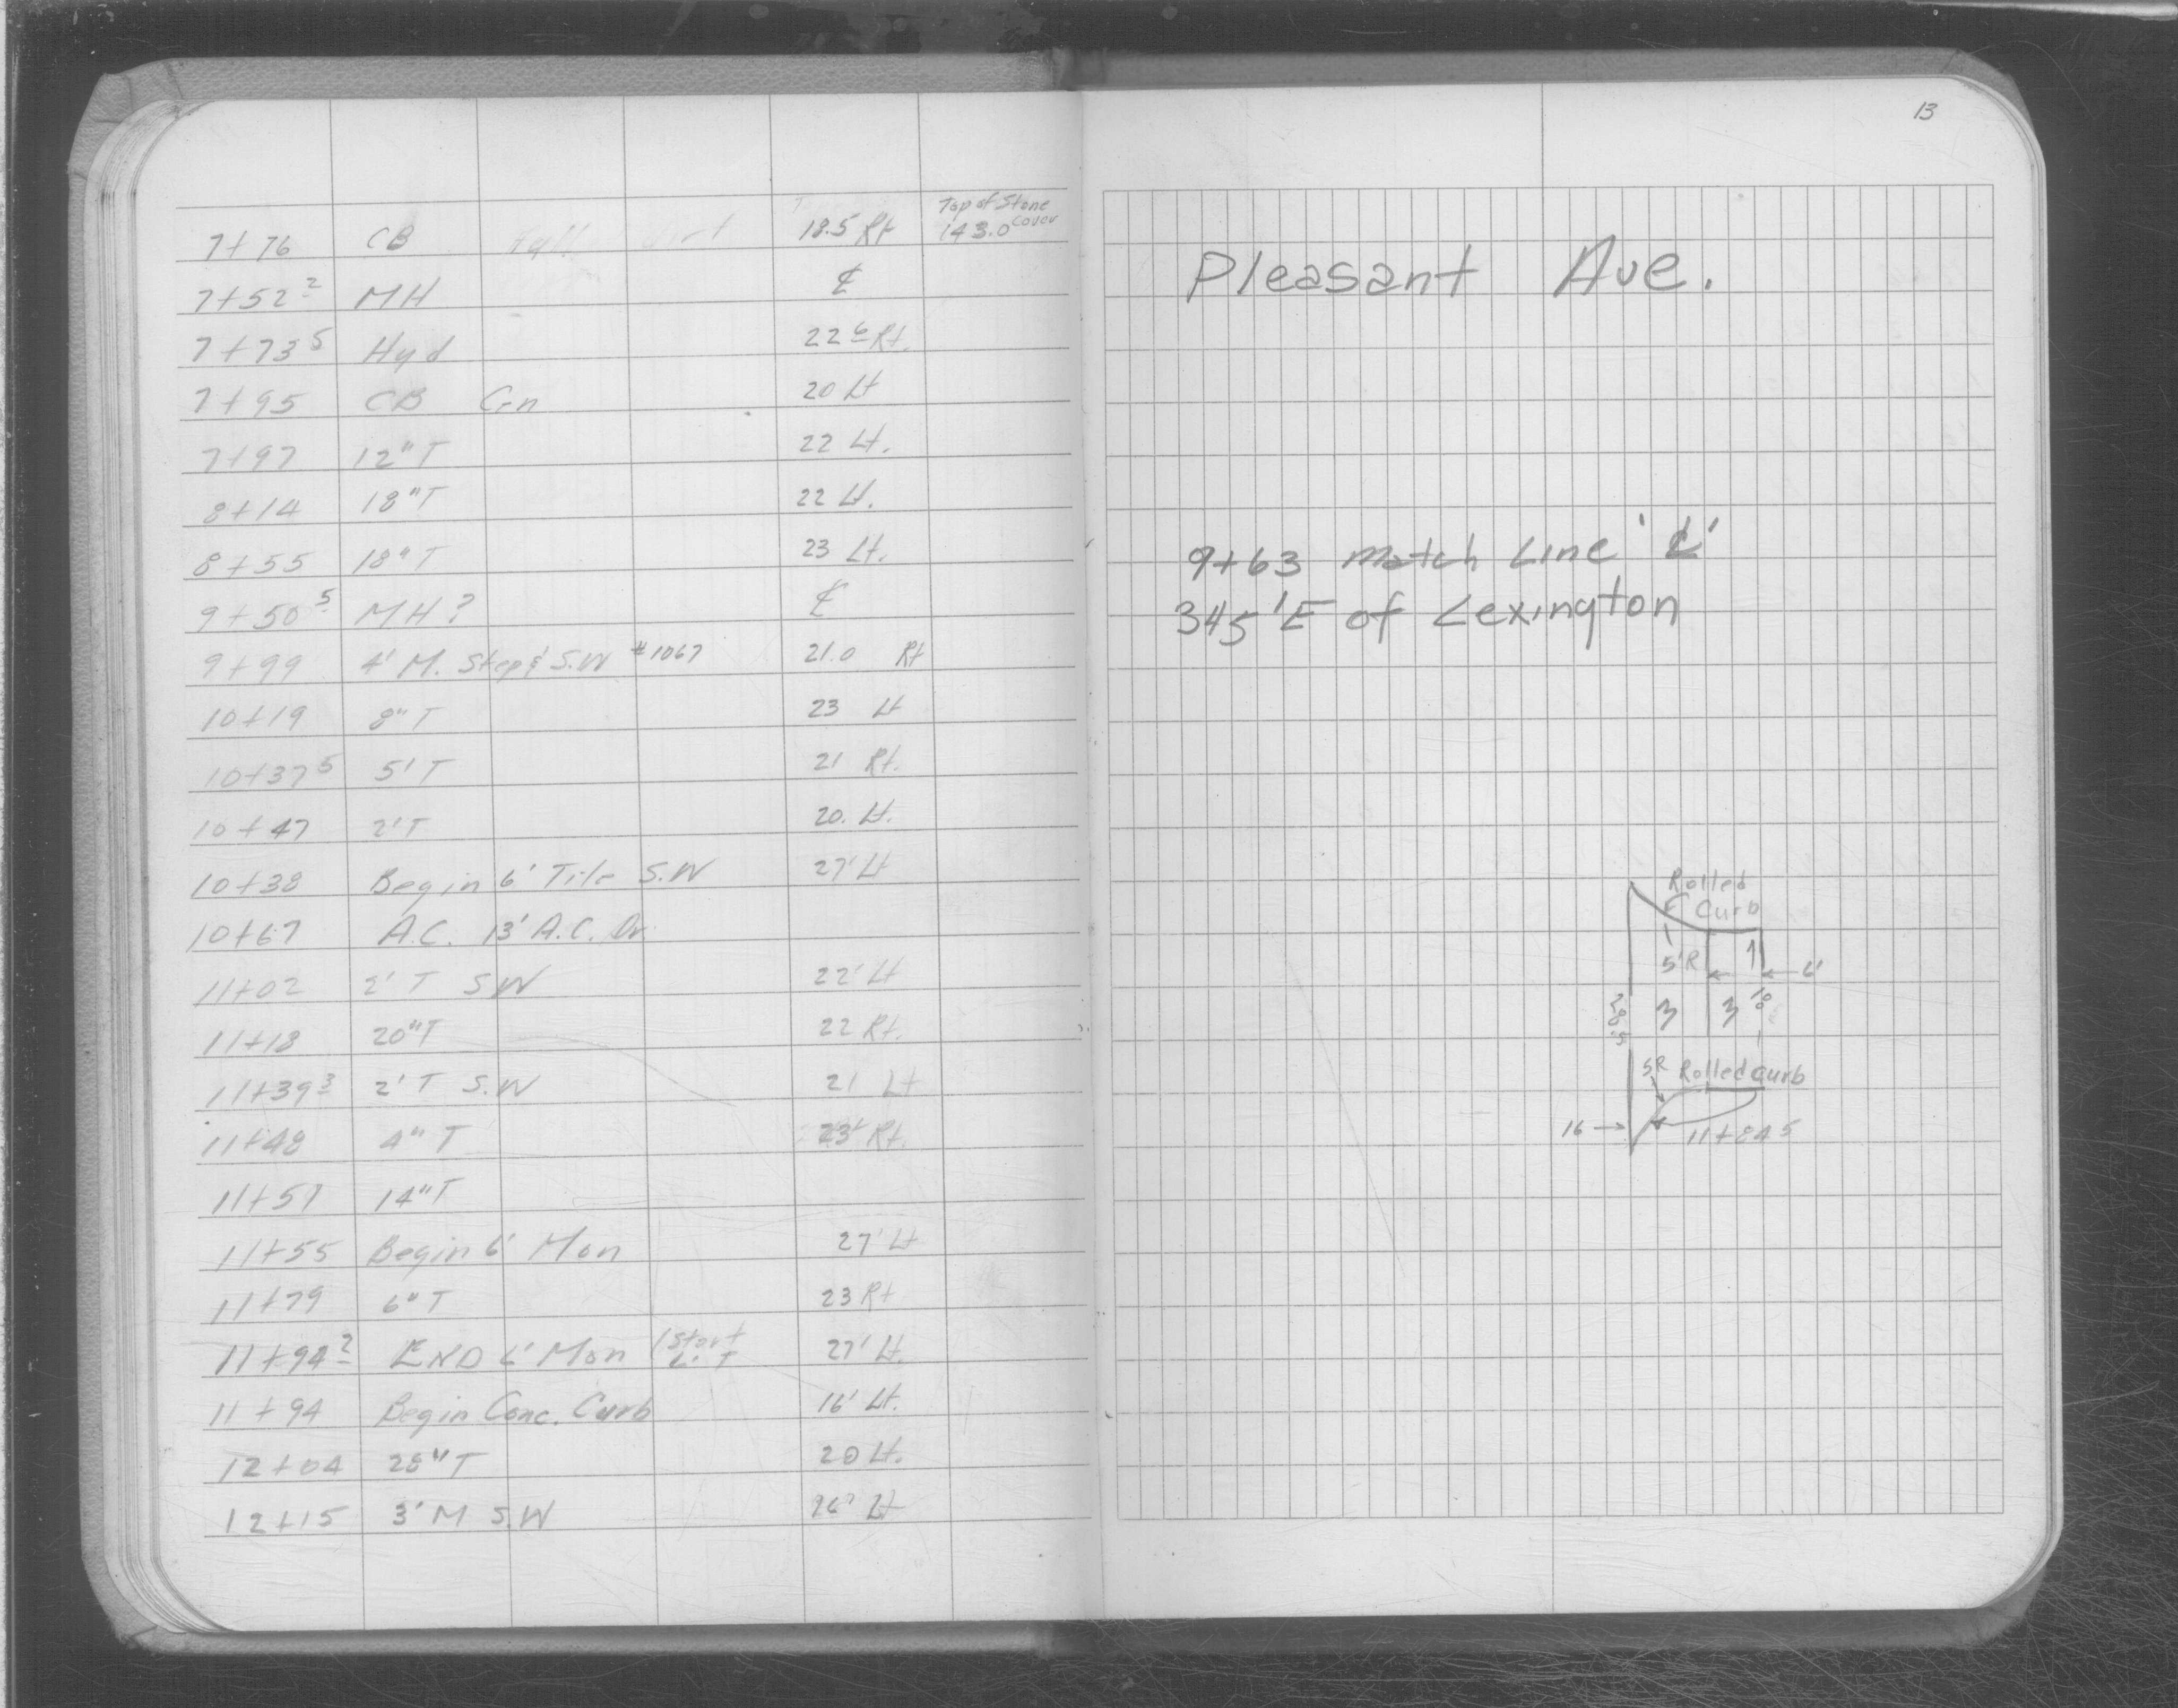 Top of Stone
7+76 CB 18.5 Rt 143.0 Cover
7+52² MH ℄
7+73⁵ Hyd 22⁶ Rt.
7+95 CB Gn 20 Lt
7+97 12"T 22 Lt.
8+14 18"T 22 Lt.
8+55 18"T 23 Lt.
9+50⁵ MH? ℄
9+99 4' M. Step & S.W #1067 21.0 Rt
10+19 8"T 23 Lt
10+37⁵ 5'T 21 Rt.
10+47 2'T 20. Lt.
10+38 Begin 6' Tile S.W 27' Lt
10+67 A.C. 13' A.C. Dr.
11+02 2' T S.W 22' Lt
11+18 20"T 22 Rt.
11+39³ 2' T S.W 21 Lt
11+48 4" T 23' Rt.
11+57 14"T
11+55 Begin 6' Mon 27' Lt
11+79 6"T 23 Rt
11+94² END 6' Mon (Start 27' Lt.
11+94 Begin Conc. Curb 16' Lt.
12+04 28"T 20 Lt.
12+15 3' M S.W Lt
13
Pleasant Ave.
9+63 Match Line '℄'
345' E of Lexington
Rolled
Curb
5'R 6'
28.5 3 3 10
5R Rolled Curb
16 11+84 5